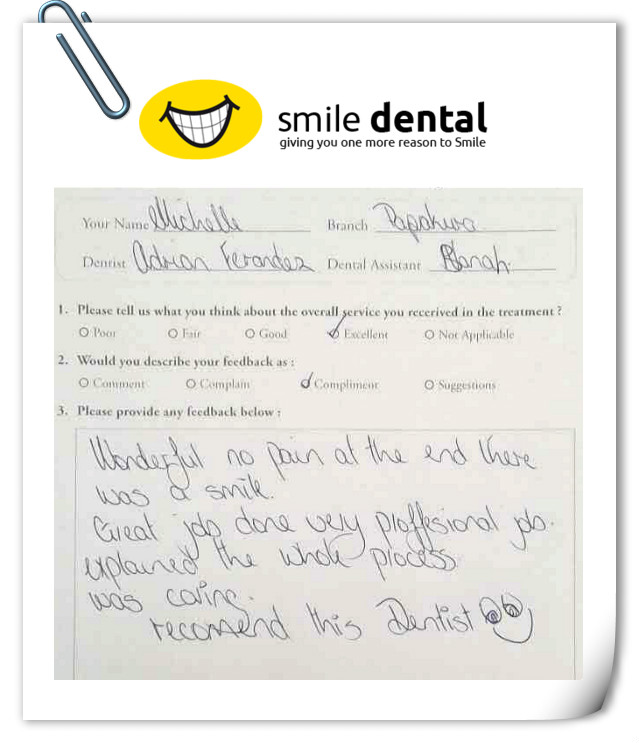 smile dental
giving you one more reason to Smile
Your Name Michelle Branch Papakura
Dentist Adrian Ferandez Dental Assistant
1. Please tell us what you think about the overall service you recerived in the treatment ?
Poor Fair Good Excellent Not Applicable
2. Would you describe your feedback as :
Comment Complain Compliment Suggestions
3. Please provide any feedback below :
Wonderful no pain at the end there
was a smile.
Great job done very proffesional job.
explained the whole process.
was caring.
recomend this Dentist